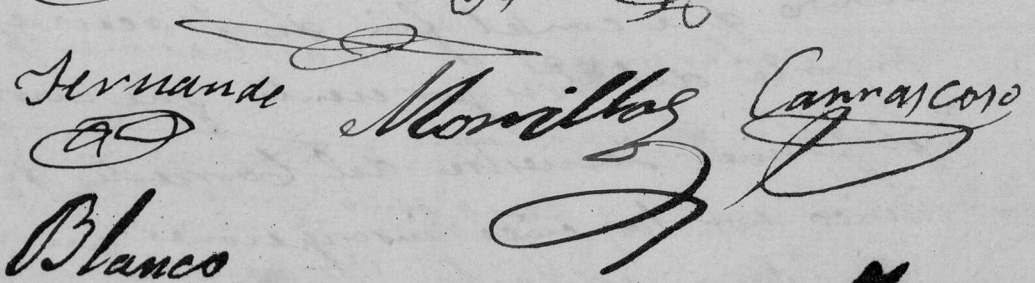 Fernande Morillas Carrascoso
Blanco